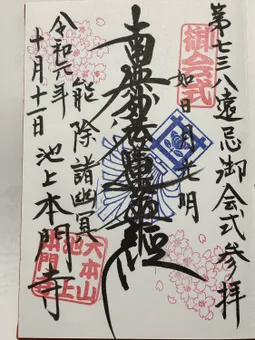 第七三八遠忌御会式参拝
御会式
如日月光明
南無妙法蓮華経
能除諸幽冥
令和元年
十月十日
池上本門寺
大本山
池上
本門寺